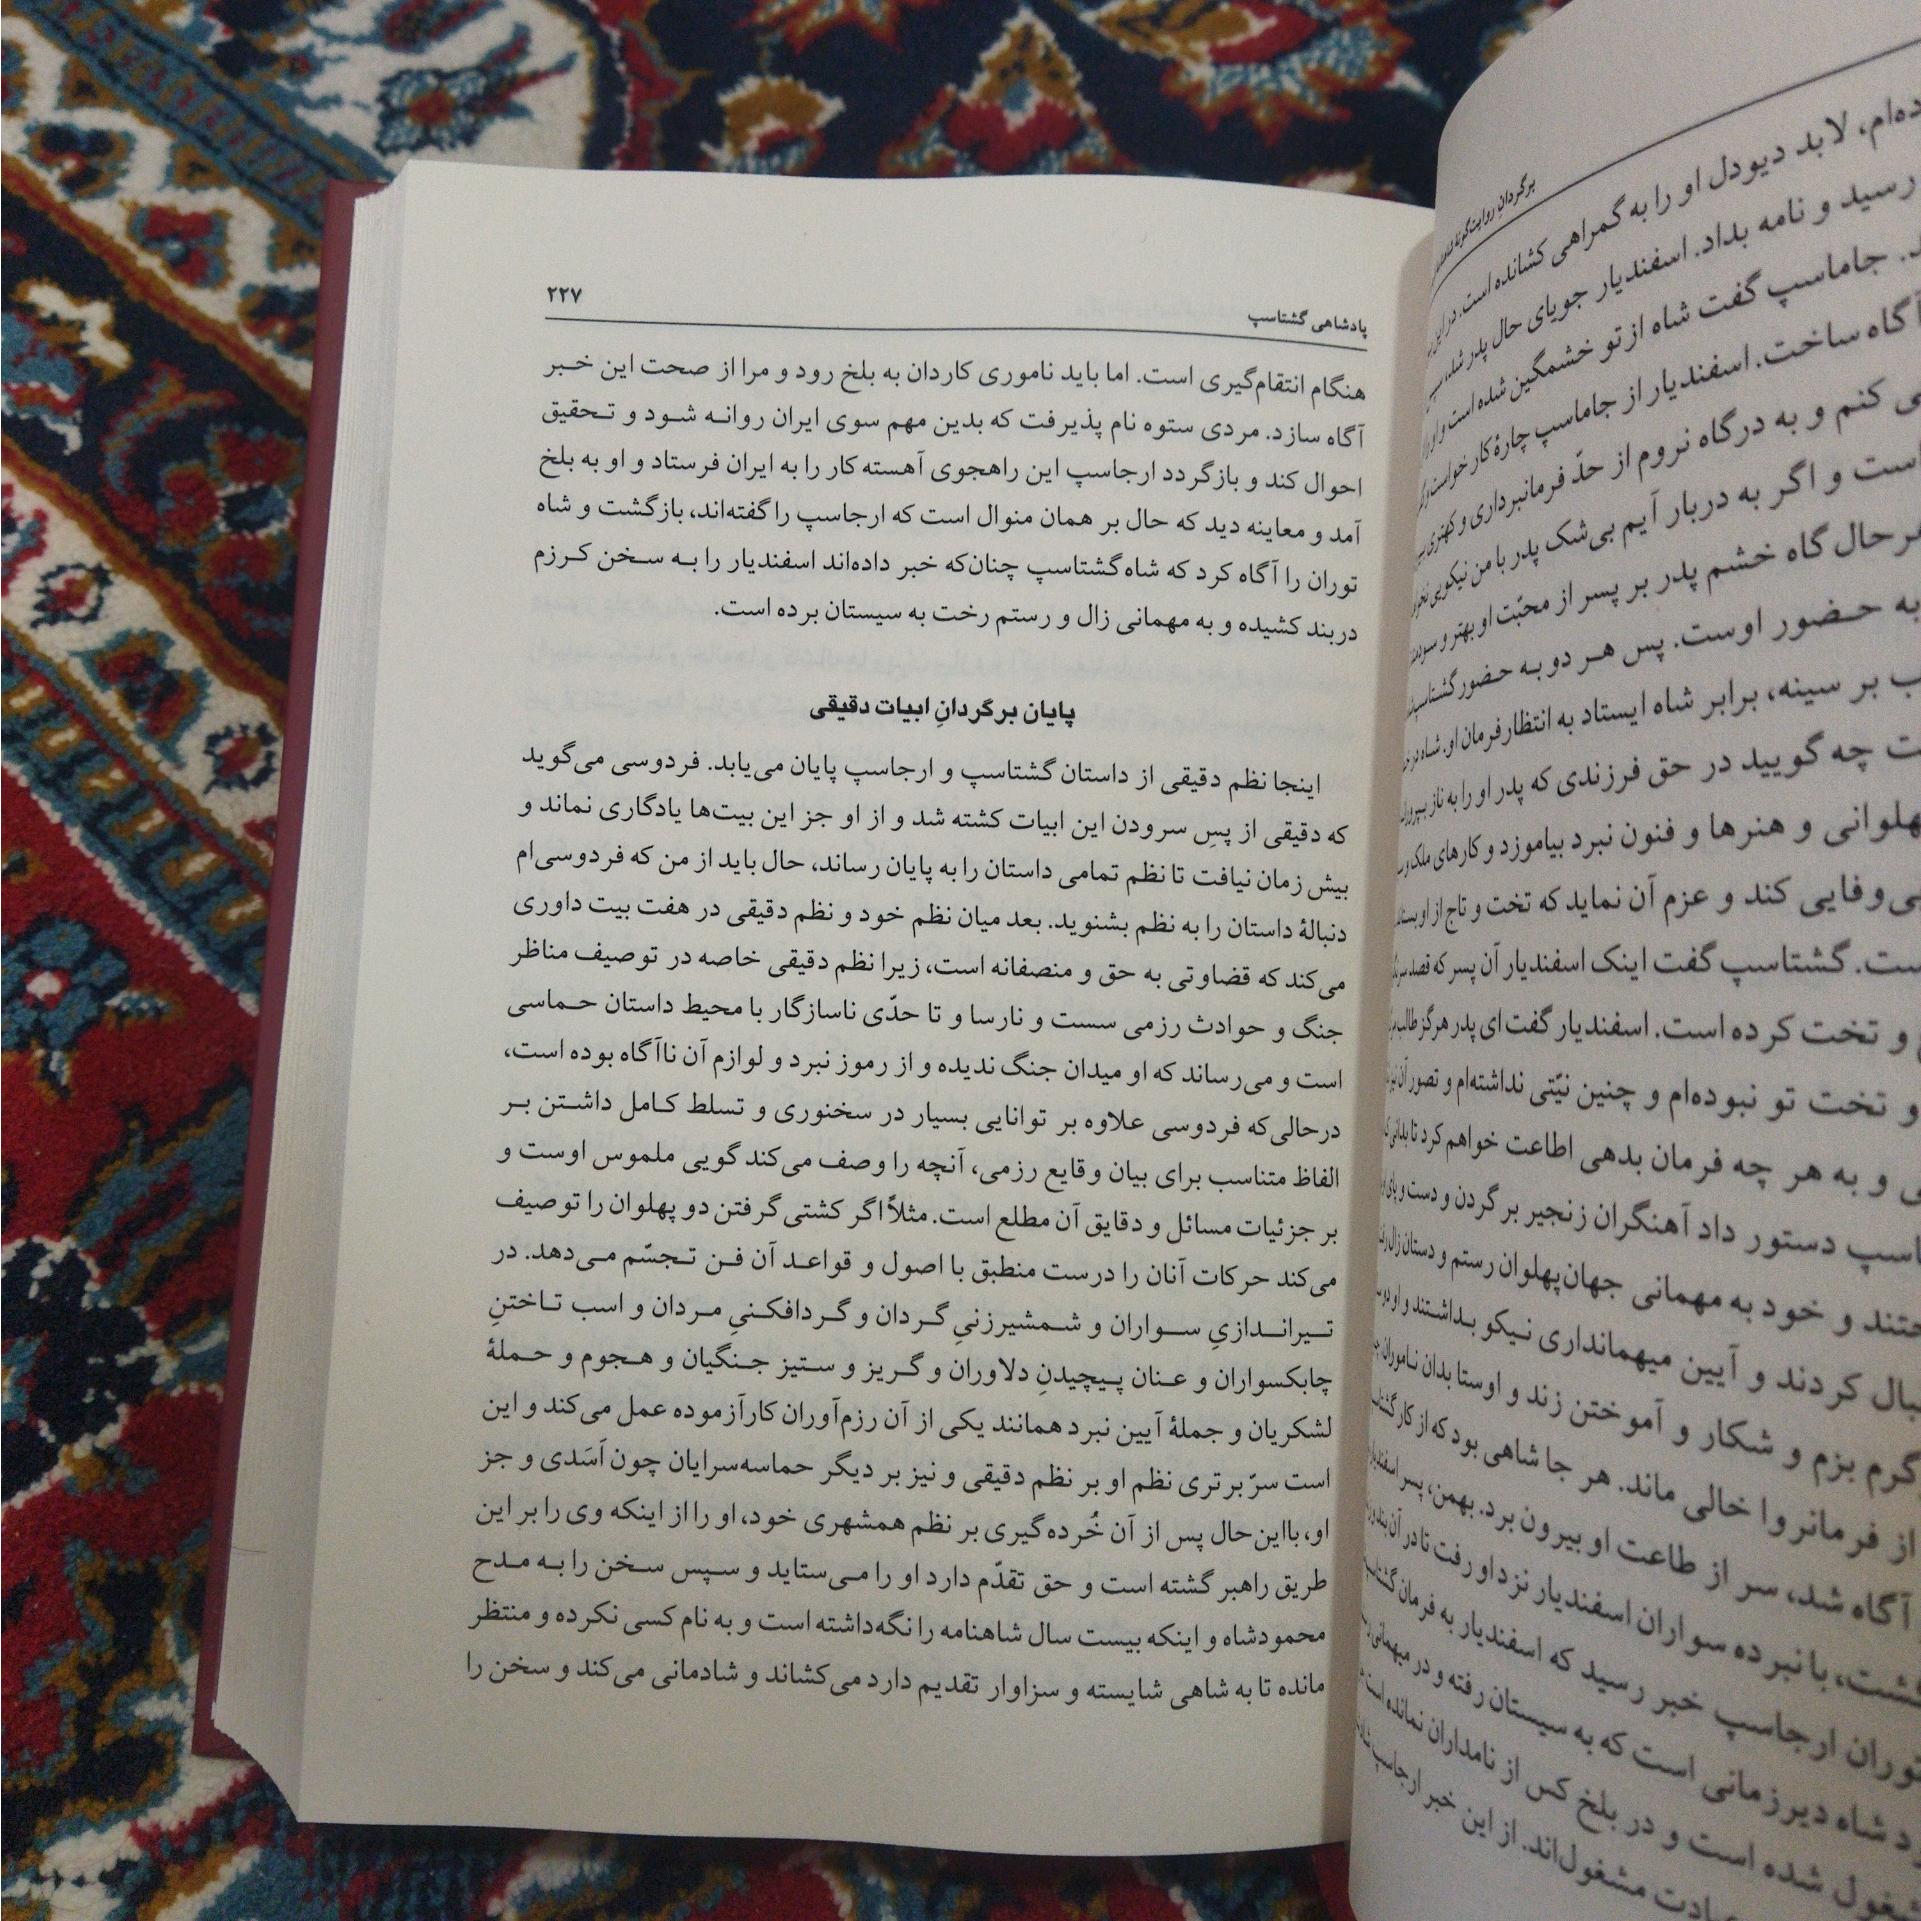 برگردانِ روایت‌گونه
ده‌ام، لابد دیودل او را به گمراهی کشانده است. در این
رسید و نامه بداد. اسفندیار جویای حال پدر شد،
جاماسپ گفت شاه از تو خشمگین شده است و او را
آگاه ساخت. اسفندیار از جاماسپ چارهٔ کار خواست و
کنم و به درگاه نروم از حدّ فرمانبرداری و کهتری
است و اگر به دربار آیم بی‌شک پدر با من نیکویی
حال گاه خشم پدر بر پسر از محبّت او بهتر و
به حضور اوست. پس هر دو به حضور گشتاسپ
بر سینه، برابر شاه ایستاد به انتظار فرمان او. شاه در
چه گویید در حق فرزندی که پدر او را به ناز بپرورد
پهلوانی و هنرها و فنون نبرد بیاموزد و کارهای ملک و
بی‌وفایی کند و عزم آن نماید که تخت و تاج از او بستاند
گشتاسپ گفت اینک اسفندیار آن پسر که قصد
و تخت کرده است. اسفندیار گفت ای پدر هرگز طالب
و تخت تو نبوده‌ام و چنین نیّتی نداشته‌ام و تصور آن
و به هر چه فرمان بدهی اطاعت خواهم کرد تا بدانی
دستور داد آهنگران زنجیر بر گردن و دست و پای او
و خود به مهمانی جهان‌پهلوان رستم و دستان زال
کردند و آیین میهمانداری نیکو بداشتند و او دو
گرم بزم و شکار و آموختن زند و اوستا بدان ناموران
از فرمانروا خالی ماند. هر جا شاهی بود که از کار گشتاسپ
آگاه شد، سر از طاعت او بیرون برد. بهمن، پسر اسفندیار
با نبرده سواران اسفندیار نزد او رفت تا در آن بند
توران ارجاسپ خبر رسید که اسفندیار به فرمان گشتاسپ
شاه دیرزمانی است که به سیستان رفته و در میهمانی
شده است و در بلخ کس از نامداران نمانده است
مشغول‌اند. از این خبر ارجاسپ
پادشاهی گشتاسپ ۲۲۷
هنگام انتقام‌گیری است. اما باید ناموری کاردان به بلخ رود و مرا از صحت این خبر
آگاه سازد. مردی ستوه نام پذیرفت که بدین مهم سوی ایران روانه شود و تحقیق
احوال کند و بازگردد ارجاسپ این راهجوی آهسته کار را به ایران فرستاد و او به بلخ
آمد و معاینه دید که حال بر همان منوال است که ارجاسپ را گفته‌اند، بازگشت و شاه
توران را آگاه کرد که شاه گشتاسپ چنان‌که خبر داده‌اند اسفندیار را به سخن کرزم
دربند کشیده و به مهمانی زال و رستم رخت به سیستان برده است.
پایان برگردانِ ابیات دقیقی
اینجا نظم دقیقی از داستان گشتاسپ و ارجاسپ پایان می‌یابد. فردوسی می‌گوید
که دقیقی از پسِ سرودن این ابیات کشته شد و از او جز این بیت‌ها یادگاری نماند و
بیش زمان نیافت تا نظم تمامی داستان را به پایان رساند، حال باید از من که فردوسی‌ام
دنبالهٔ داستان را به نظم بشنوید. بعد میان نظم خود و نظم دقیقی در هفت بیت داوری
می‌کند که قضاوتی به حق و منصفانه است، زیرا نظم دقیقی خاصه در توصیف مناظر
جنگ و حوادث رزمی سست و نارسا و تا حدّی ناسازگار با محیط داستان حماسی
است و می‌رساند که او میدان جنگ ندیده و از رموز نبرد و لوازم آن ناآگاه بوده است،
درحالی‌که فردوسی علاوه بر توانایی بسیار در سخنوری و تسلط کامل داشتن بر
الفاظ متناسب برای بیان وقایع رزمی، آنچه را وصف می‌کند گویی ملموس اوست و
بر جزئیات مسائل و دقایق آن مطلع است. مثلاً اگر کشتی گرفتن دو پهلوان را توصیف
می‌کند حرکات آنان را درست منطبق با اصول و قواعد آن فن تجسّم می‌دهد. در
تیراندازیِ سواران و شمشیرزنیِ گردان و گردافکنیِ مردان و اسب تاختنِ
چابکسواران و عنان پیچیدنِ دلاوران و گریز و ستیز جنگیان و هجوم و حملهٔ
لشکریان و جملهٔ آیین نبرد همانند یکی از آن رزم‌آوران کارآزموده عمل می‌کند و این
است سرّ برتری نظم او بر نظم دقیقی و نیز بر دیگر حماسه‌سرایان چون اَسَدی و جز
او، بااین‌حال پس از آن خُرده‌گیری بر نظم همشهری خود، او را از اینکه وی را بر این
طریق راهبر گشته است و حق تقدّم دارد او را می‌ستاید و سپس سخن را به مدح
محمودشاه و اینکه بیست سال شاهنامه را نگه‌داشته است و به نام کسی نکرده و منتظر
مانده تا به شاهی شایسته و سزاوار تقدیم دارد می‌کشاند و شادمانی می‌کند و سخن را